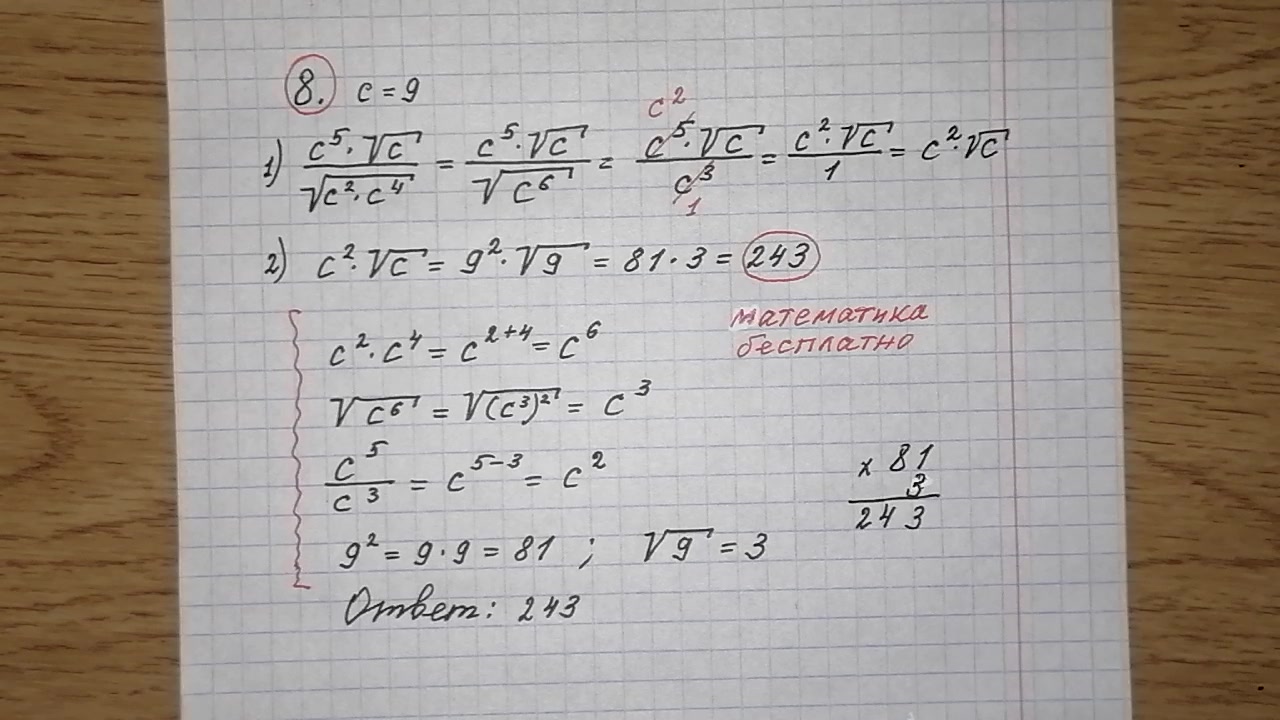 8. c = 9
c²
1) (c⁵·√c)/(√(c²·c⁴)) = (c⁵·√c)/(√(c⁶)) = (c⁵·√c)/(c³) = (c²·√c)/1 = c²·√c
1
2) c²·√c = 9²·√9 = 81·3 = 243
математика
бесплатно
c²·c⁴ = c²⁺⁴ = c⁶
√(c⁶) = √((c³)²) = c³
c⁵/c³ = c⁵⁻³ = c²
x 81
3
243
9² = 9·9 = 81 ; √9 = 3
Ответ: 243